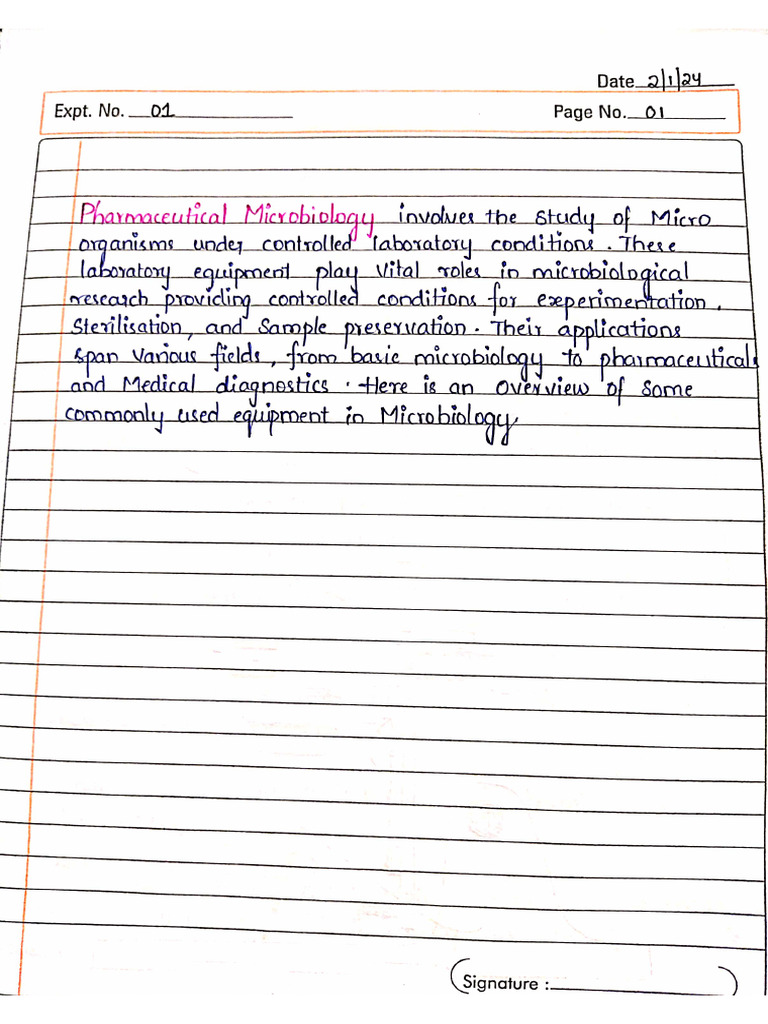 Date 2/1/24
Expt. No. 01 Page No. 01
Pharmaceutical Microbiology involves the study of Micro
organisms under controlled laboratory conditions. These
laboratory equipment play vital roles in microbiological
research providing controlled conditions for experimentation,
Sterilisation, and Sample preservation. Their applications
span various fields, from basic microbiology to pharmaceuticals
and Medical diagnostics. Here is an overview of some
commonly used equipment in Microbiology
Signature :